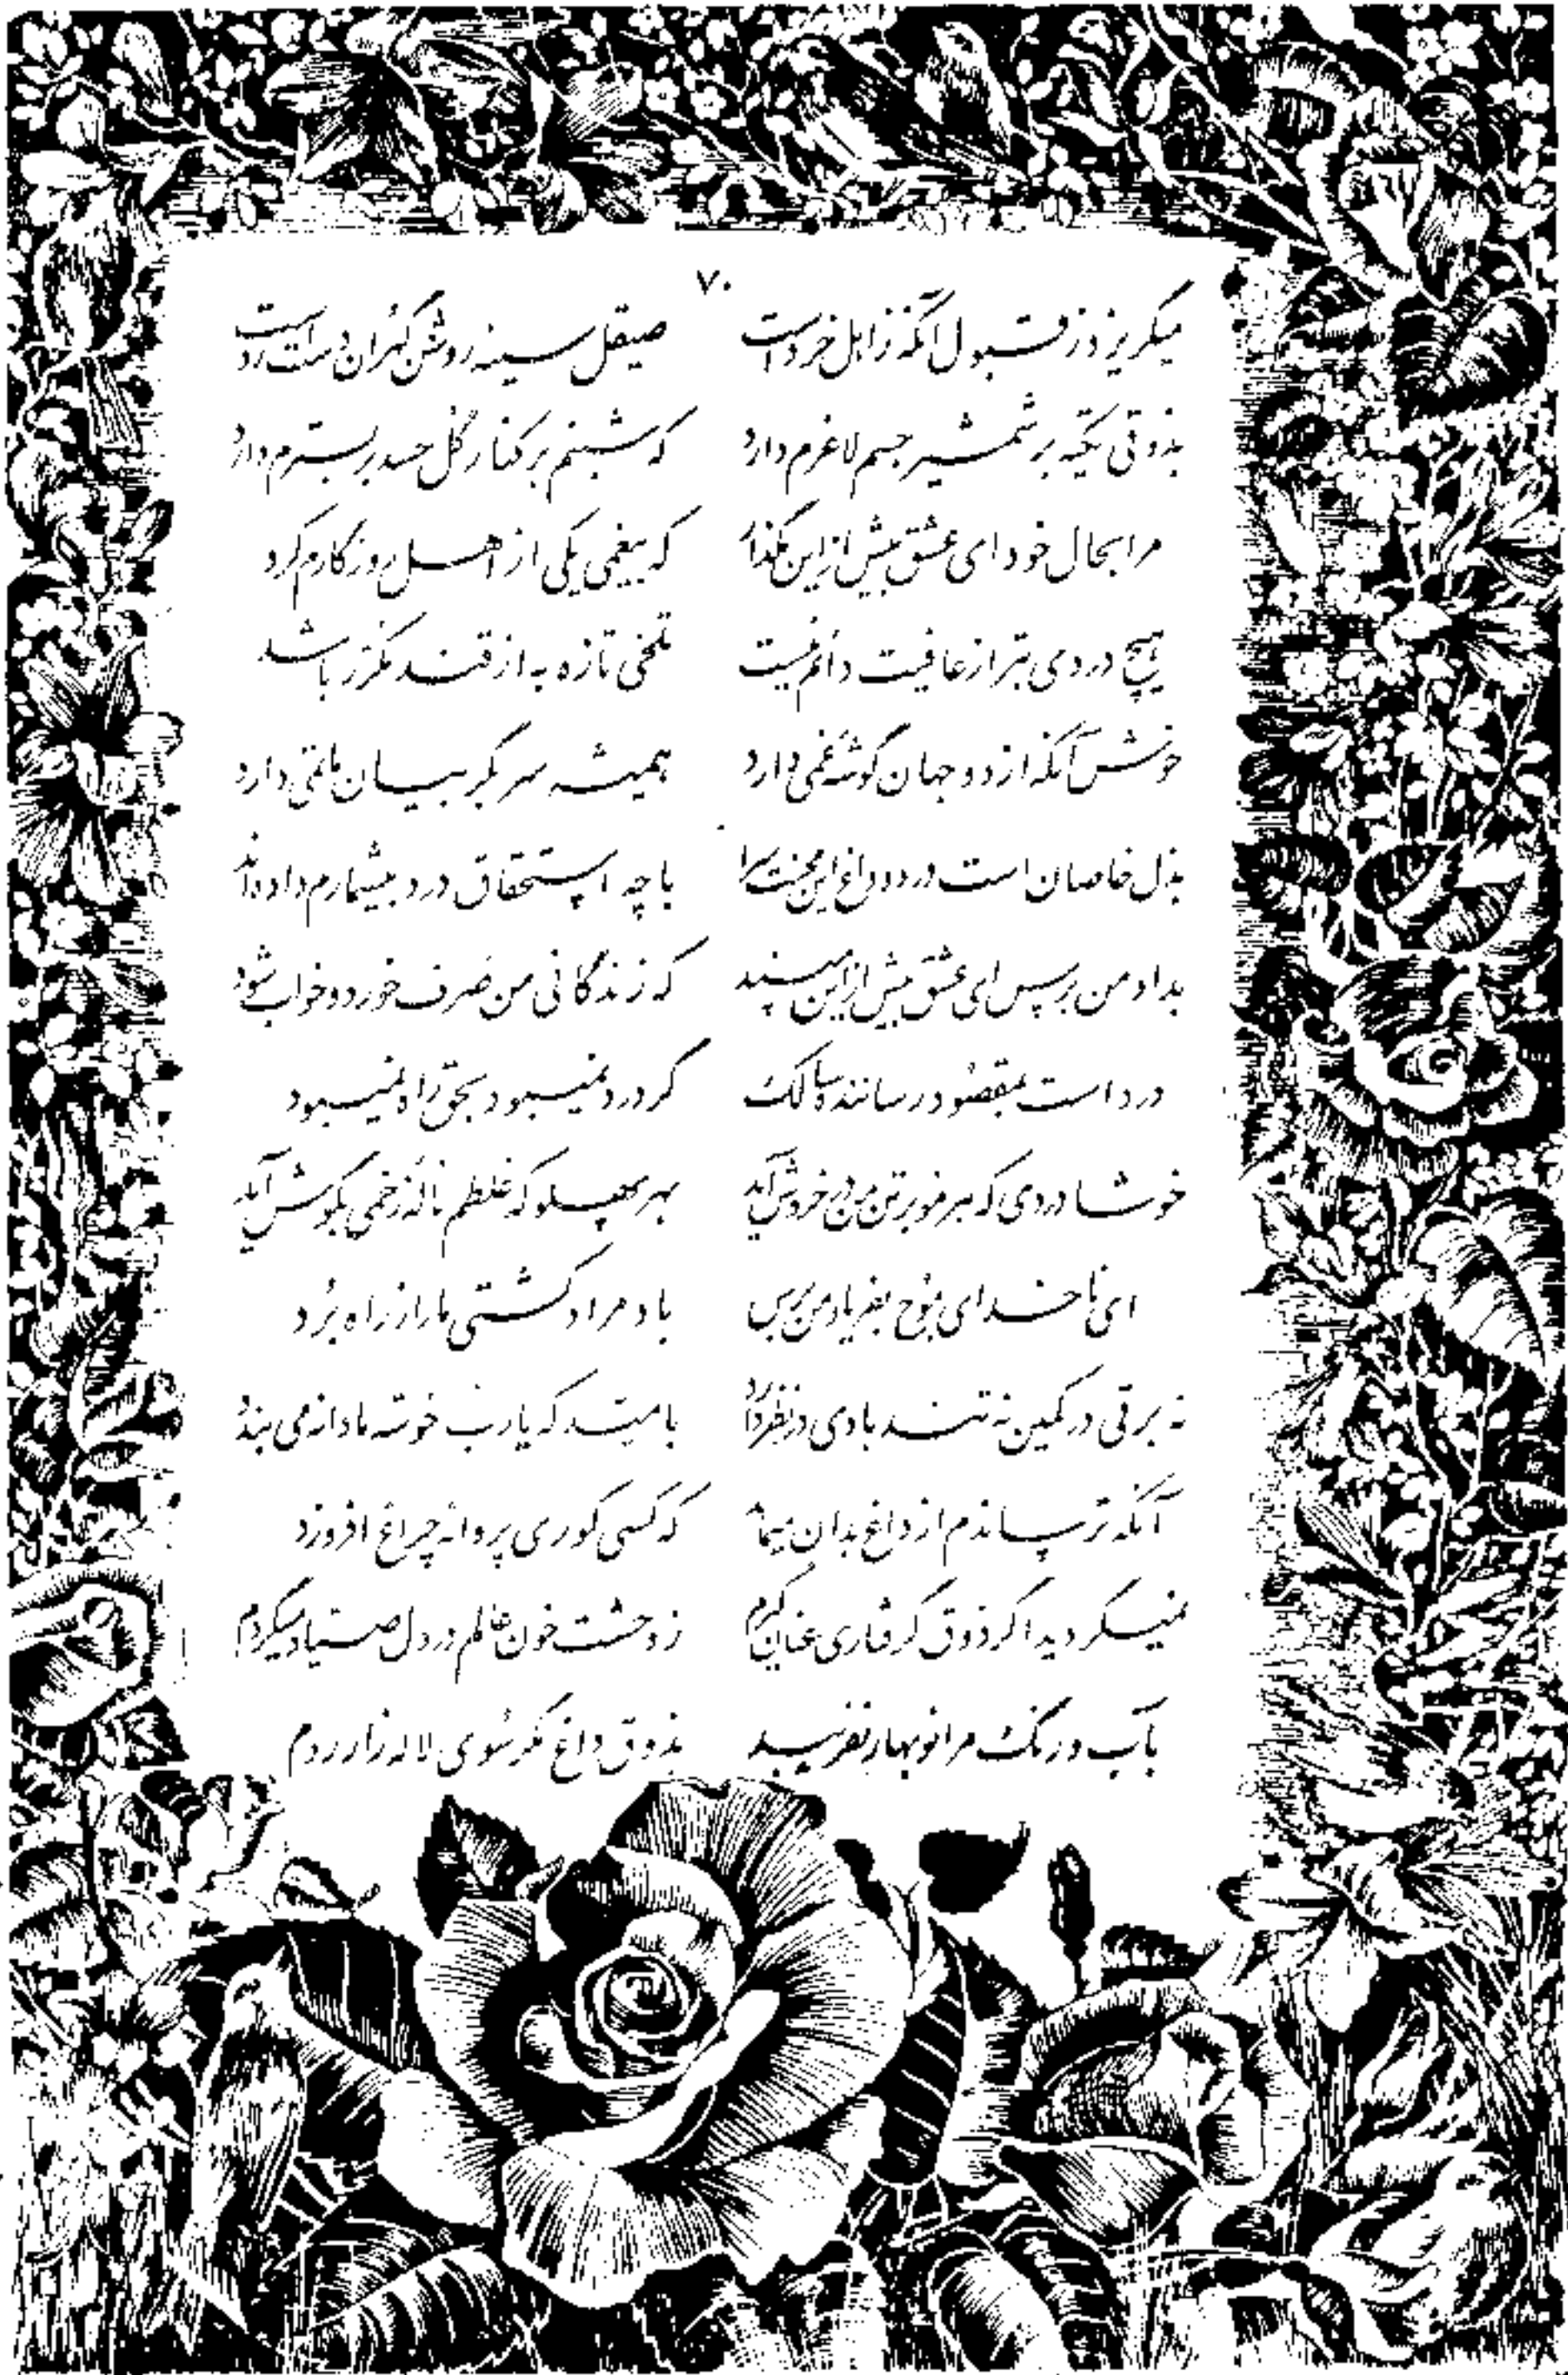 ۷۰
میگریزد ز قبول آنکه ز اهل خرد است صیقل سینه روشن گهران دست رد است
بذوقی تکیه بر شمشیر جسم لاغرم دارد که شبنم بر کنار گل حسد بر بسترم دارد
مرا بحال خود ای عشق بیش ازین مگذار که بیغمی یکی از اهل روزگارم کرد
هیچ دردی بتر از عافیت دائم نیست تلخی تازه به از قند مکرر باشد
خوش آنکه از دو جهان گوشه غمی دارد همیشه سر بگریبان ماتمی دارد
بذل خاصان است درد و داغ این محنت سرا با چه استحقاق درد بیشمارم داده‌اند
بداد من برس ای عشق بیش ازین مپسند که زندگانی من صرف خورد و خواب شود
درد است بمقصود رساننده سالک گر درد نمیبود بحق راه نمیبود
خوشا دردی که هر مو بر تن من در خروش آید بهر پهلو که غلطم ناله زخمی بگوش آید
ای ناخدای موج بفریاد من برس باد مراد کشتی ما را ز راه برد
نه برقی در کمین نه تند بادی در نظر دارد بامید که یارب خوشه ما دانه می بندد
آنکه ترساندم از داغ بدان میماند که کسی کوری پروانه چراغ افروزد
نمیگردید اگر ذوق گرفتاری عنان گیرم ز وحشت خون عالم در دل صیاد میکردم
بآب و رنگ مرا نوبهار نفریبد بذوق داغ مگر سوی لاله زار روم